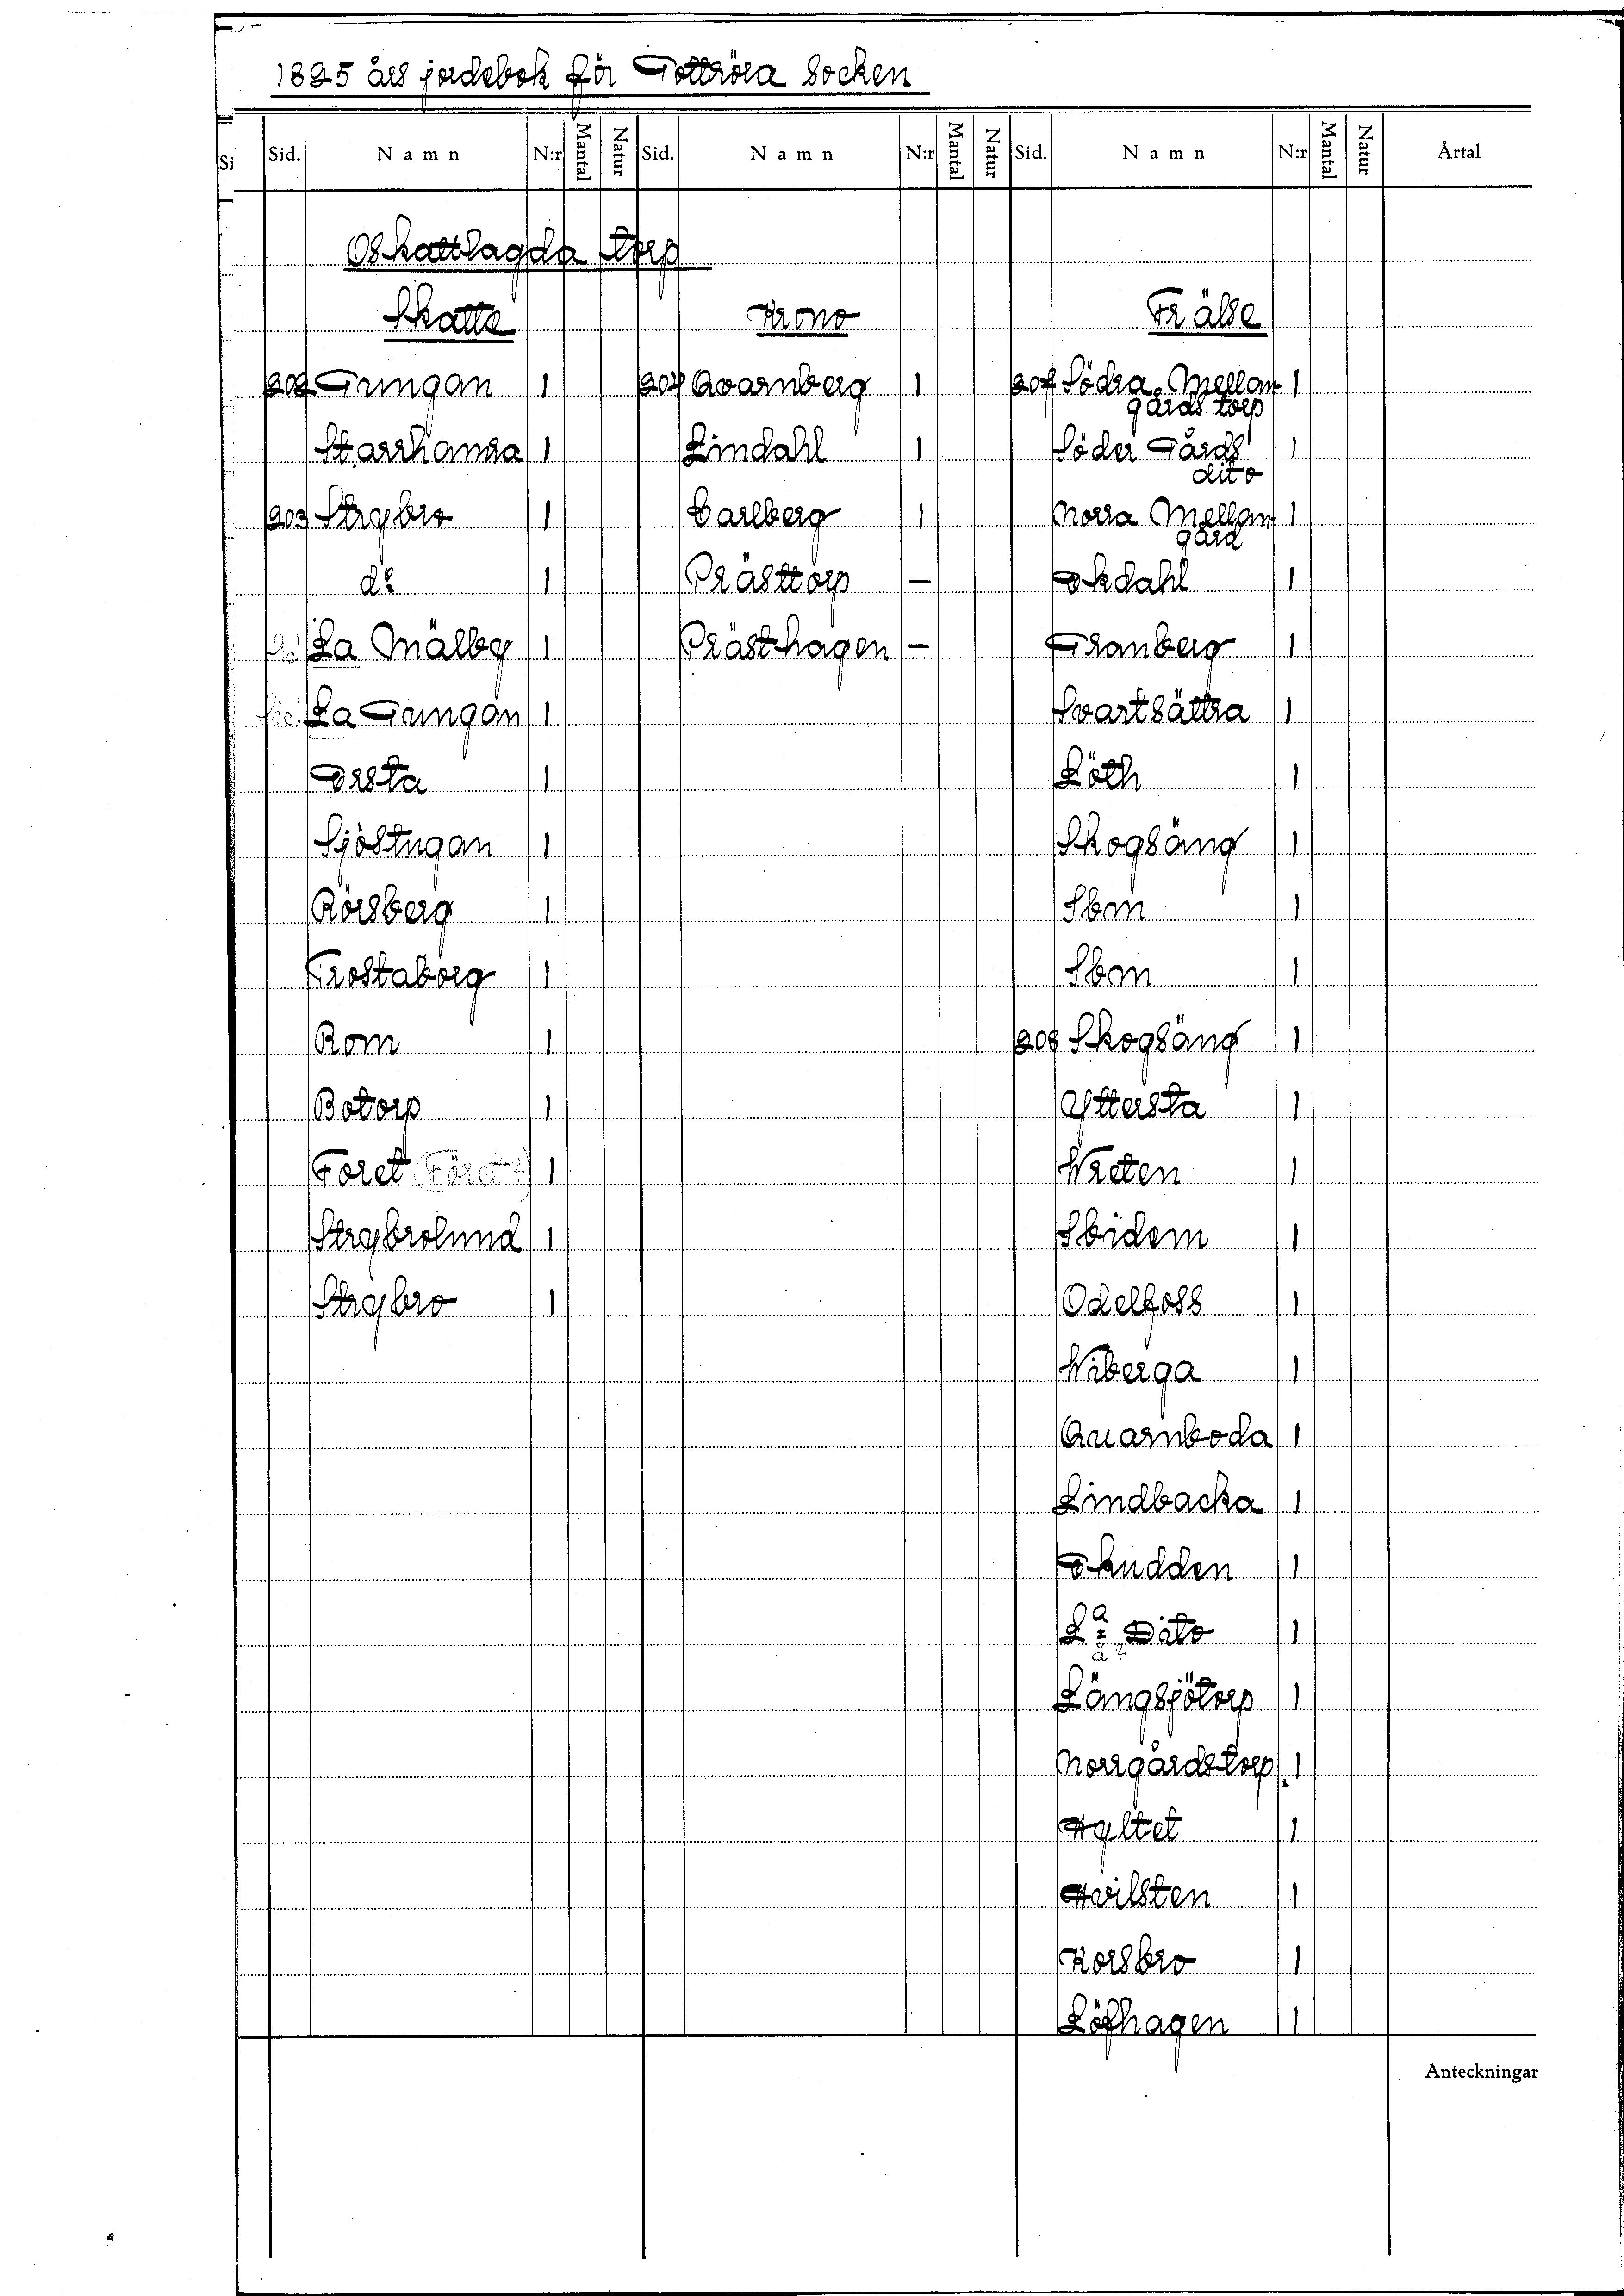 1825 års jordebok för Gottröra Socken
Si Sid. Namn N:r Mantal Natur Sid. Namn N:r Mantal Natur Sid. Namn N:r Mantal Natur Årtal
Oskattlagda torp
Skatte Krono Frälse
202 Gungan 1 204 Qvarnberg 1 207 Södra Mellan- 1
gårds torp
Starrhamra 1 Lindahl 1 Söder Gårds 1
dito
203 Strybro 1 Carlberg 1 Norra Mellan- 1
gård
do 1 Prästtorp — Ekdahl 1
Sic! La Mälby 1 Prästhagen — Granberg 1
Sic! La Gungan 1 Svartsättra 1
Ersta 1 Löth 1
Sjöstugan 1 Skogsäng 1
Rörsberg 1 Ibm 1
Trostaborg 1 Ibm 1
Rom 1 208 Skogsäng 1
Botorp 1 Yttersta 1
Foret (Föret?) 1 Wreten 1
Strybrolund 1 Ibidem 1
Strybro 1 Odelfoss 1
Wiberga 1
Quarnboda 1
Lindbacka 1
Ekudden 1
La Dito 1
å?
Längsjötorp 1
Norrgårdstorp 1
Hyltet 1
Hvilsten 1
Korsbro 1
Löfhagen 1
Anteckningar